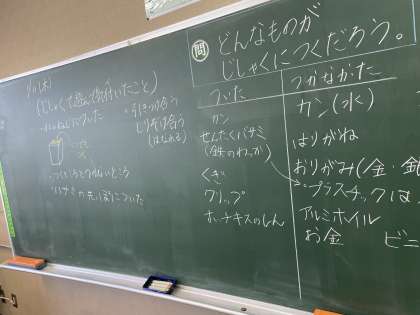 9/11(木)
(じしゃくで遊んで気付いたこと)
・引きつけ合う
しりぞけ合う
(はなれる)
・つくところとつかないところ
・ハサミの先っぽについた
問 どんなものが
じしゃくにつくだろう。
ついた
カン
せんたくバサミ
(鉄のわっか)
くぎ
クリップ
ホッチキスのしん
つかなかった
カン(水)
はりがね
おりがみ(金・銀
プラスチックは
アルミホイル
お金
ビニ